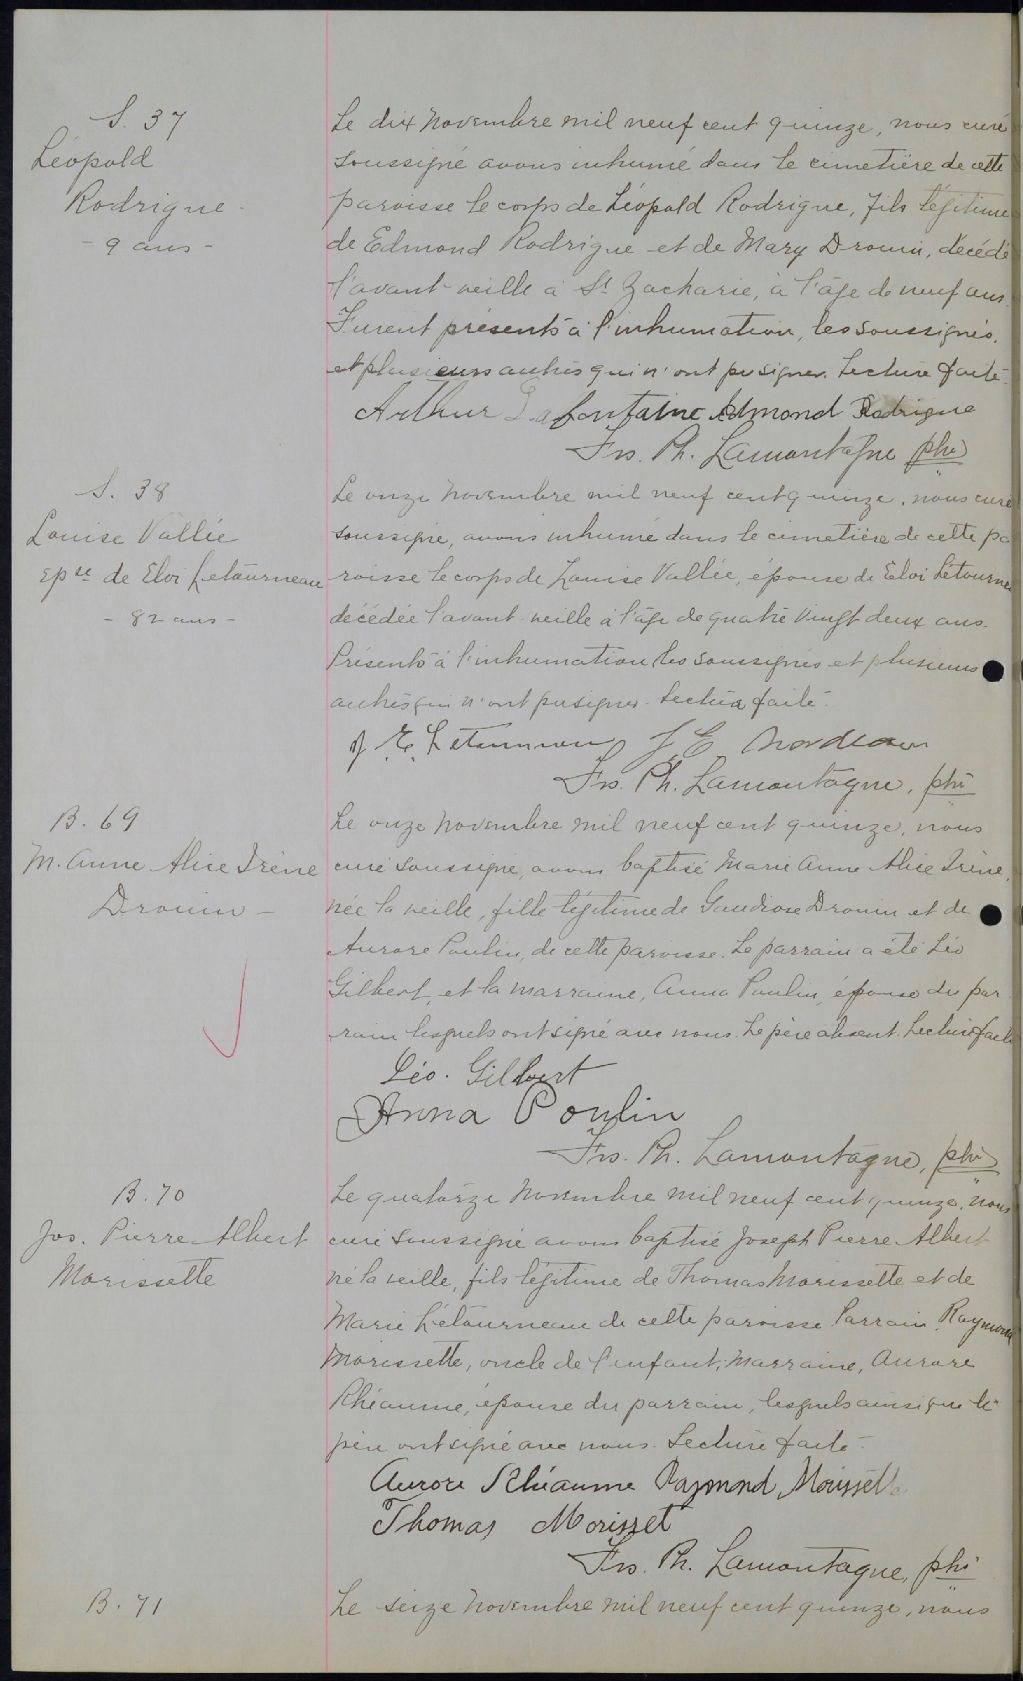 S. 37
Léopold
Rodrigue
- 9 ans -
Le dix novembre mil neuf cent quinze, nous curé
soussigné avons inhumé dans le cimetière de cette
paroisse le corps de Léopold Rodrigue, fils légitime
de Edmond Rodrigue et de Mary Drouin, décédé
l'avant-veille à St Zacharie, à l'âge de neuf ans.
Furent présents à l'inhumation, les soussignés,
et plusieurs autres qui n'ont pu signer. Lecture faite.
Arthur Lafontaine Edmond Rodrigue
Frs. Ph. Lamontagne ptre
S. 38
Louise Vallée
Epse de Eloi Letourneau
- 82 ans -
Le onze novembre mil neuf cent quinze, nous curé
soussigné, avons inhumé dans le cimetière de cette pa
roisse le corps de Louise Vallée, épouse de Eloi Letourneau
décédée l'avant-veille à l'âge de quatre vingt deux ans.
Présents à l'inhumation les soussignés et plusieurs
autres qui n'ont pu signer. Lecture faite.
J. E. Letourneau J E
Frs. Ph. Lamontagne, ptre
B. 69
M. Anne Alice Irène
Drouin -
Le onze novembre mil neuf cent quinze, nous
curé soussigné, avons baptisé Marie Anne Alice Irène,
née la veille, fille légitime de Gaudiose Drouin et de
Aurore Poulin, de cette paroisse. Le parrain a été Léo
Gilbert, et la marraine, Anna Poulin, épouse du par
rain lesquels ont signé avec nous. Le père absent. Lecture faite
Léo. Gilbert
Anna Poulin
Frs. Ph. Lamontagne, ptre
B. 70
Jos. Pierre Albert
Morissette
Le quatorze novembre mil neuf cent quinze, nous
curé soussigné avons baptisé Joseph Pierre Albert
né la veille, fils légitime de Thomas Morissette et de
Marie Létourneau de cette paroisse. Parrain, Raymond
Morissette, oncle de l'enfant; marraine, Aurore
Rhéaume, épouse du parrain, lesquels ainsi que le
père ont signé avec nous. Lecture faite.
Aurore Rhéaume Raymond Morissette
Thomas Morisset
Frs. Ph. Lamontagne, ptre
B. 71
Le seize novembre mil neuf cent quinze, nous